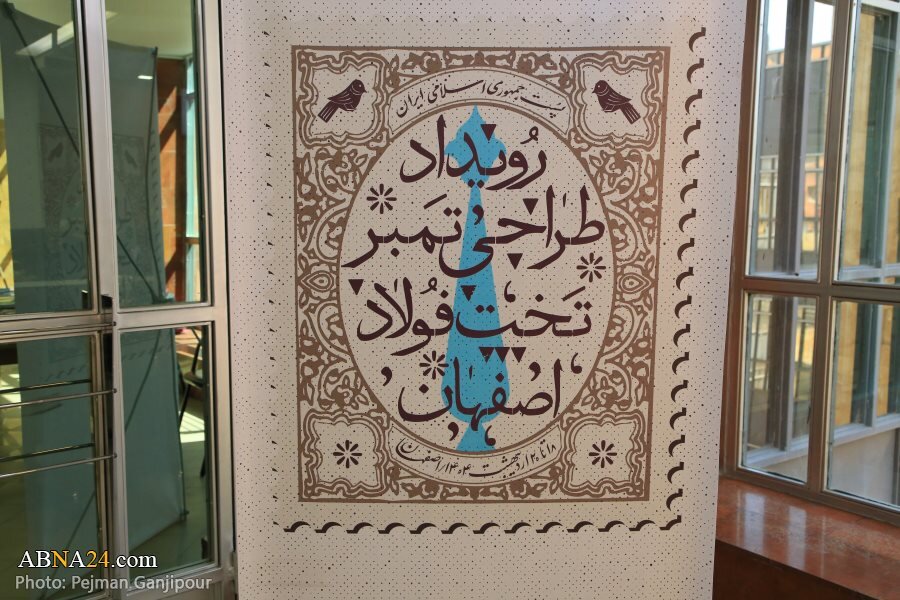 پست جمهوری اسلامی ایران
رویداد
طراحی تمبر
تخت فولاد
اصفهان
۱۸ تا ۲۰ اردیبهشت ۱۴۰۴/اصفهان
ABNA24.com
Photo: Pejman Ganjipour